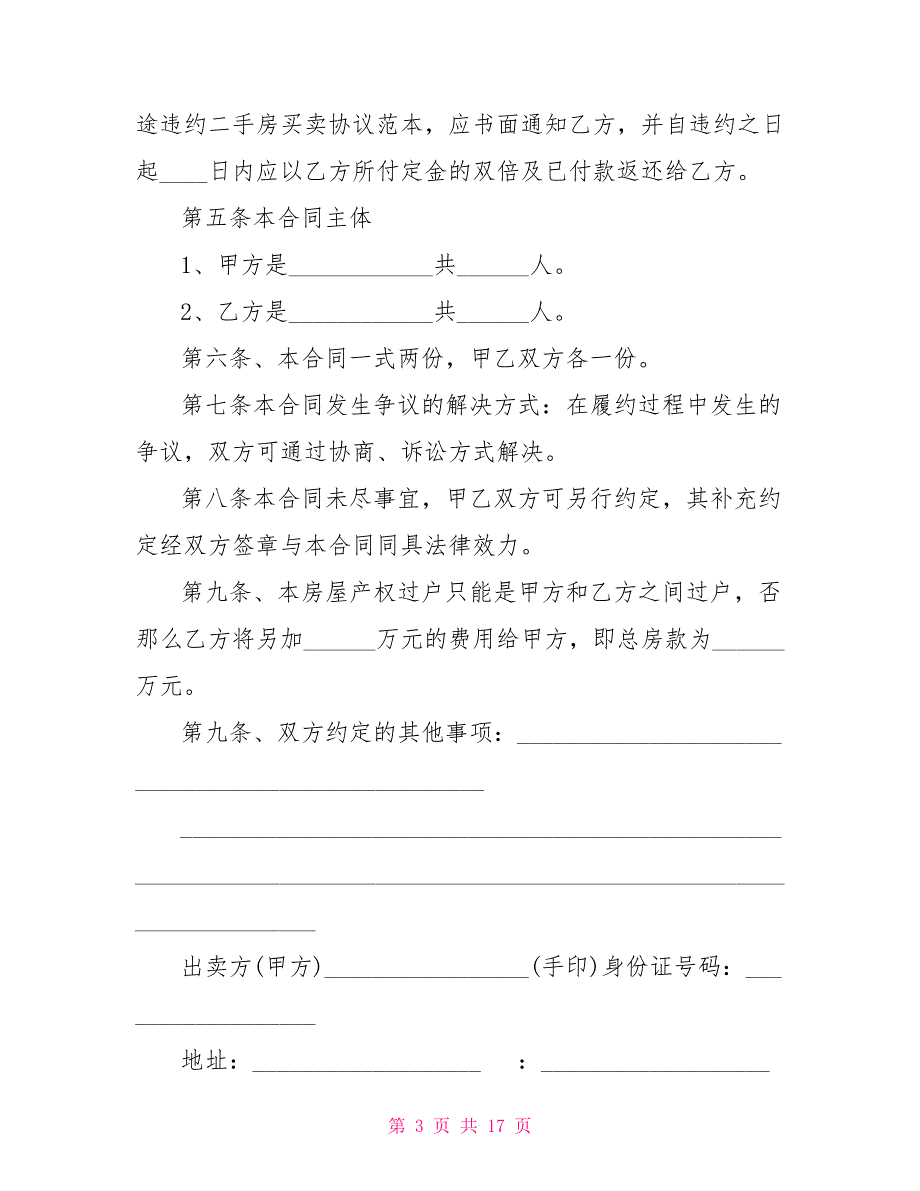 途违约二手房买卖协议范本，应书面通知乙方，并自违约之日
起____日内应以乙方所付定金的双倍及已付款返还给乙方。
第五条本合同主体
1、甲方是____________共______人。
2、乙方是____________共______人。
第六条、本合同一式两份，甲乙双方各一份。
第七条本合同发生争议的解决方式：在履约过程中发生的
争议，双方可通过协商、诉讼方式解决。
第八条本合同未尽事宜，甲乙双方可另行约定，其补充约
定经双方签章与本合同同具法律效力。
第九条、本房屋产权过户只能是甲方和乙方之间过户，否
那么乙方将另加______万元的费用给甲方，即总房款为______
万元。
第九条、双方约定的其他事项：______________________
_____________________________
__________________________________________________
______________________________________________________
_______________
出卖方(甲方)_________________(手印)身份证号码：___
_______________
地址：___________________ ：___________________
第 3 页 共 17 页